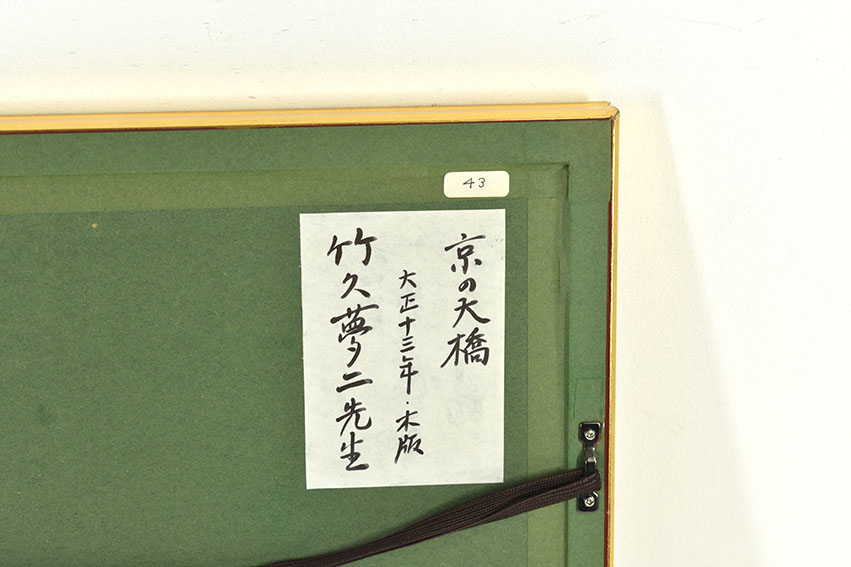 43
京の大橋
大正十三年・木版
竹久夢二先生